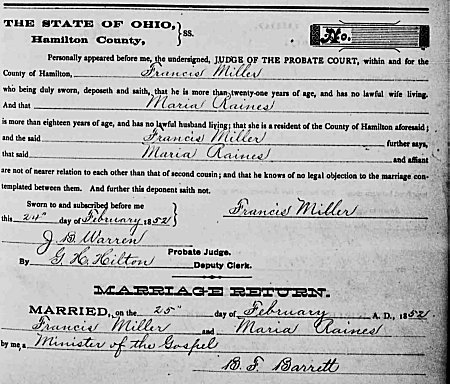 THE STATE OF OHIO, } SS.
Hamilton County,
No.
Personally appeared before me, the undersigned, JUDGE OF THE PROBATE COURT, within and for the
County of Hamilton, Francis Miller
who being duly sworn, deposeth and saith, that he is more than twenty-one years of age, and has no lawful wife living.
And that Maria Raines
is more than eighteen years of age, and has no lawful husband living; that she is a resident of the County of Hamilton aforesaid;
and the said Francis Miller further says,
that said Maria Raines and affiant
are not of nearer relation to each other than that of second cousin; and that he knows of no legal objection to the marriage con-
templated between them. And further this deponent saith not.
Sworn to and subscribed before me
this 24" day of February 1852 } Francis Miller
J B Warren
Probate Judge.
By G. H. Hilton Deputy Clerk.
MARRIAGE RETURN.
MARRIED, on the 25" day of February A. D., 1852.
Francis Miller and Maria Raines
by me, a Minister of the Gospel
B. F. Barrett